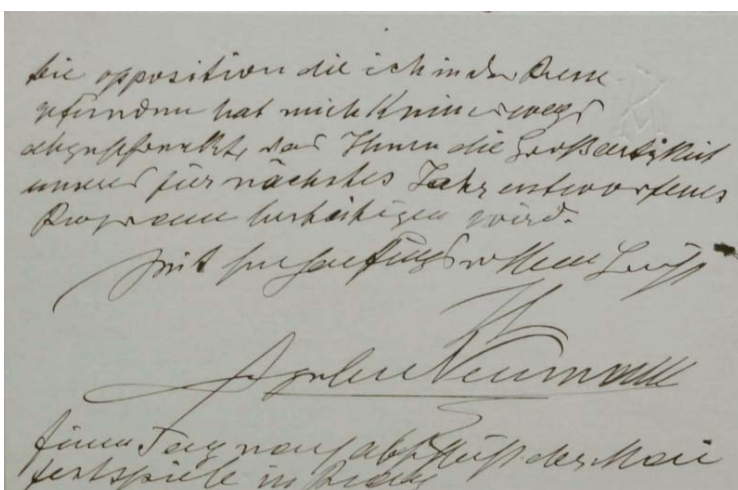 die opposition die ich in der Presse
gefunden hat mich Keineswegs
abgeschreckt, was Ihnen die Großartigkeit
unseres für nächstes Jahr entworfenes
Programm bestätigen wird.
Mit hochachtungsvollem Gruß
Angelo Neumann
Einen Tag nach abschluß der Mai
festspiele in Prag